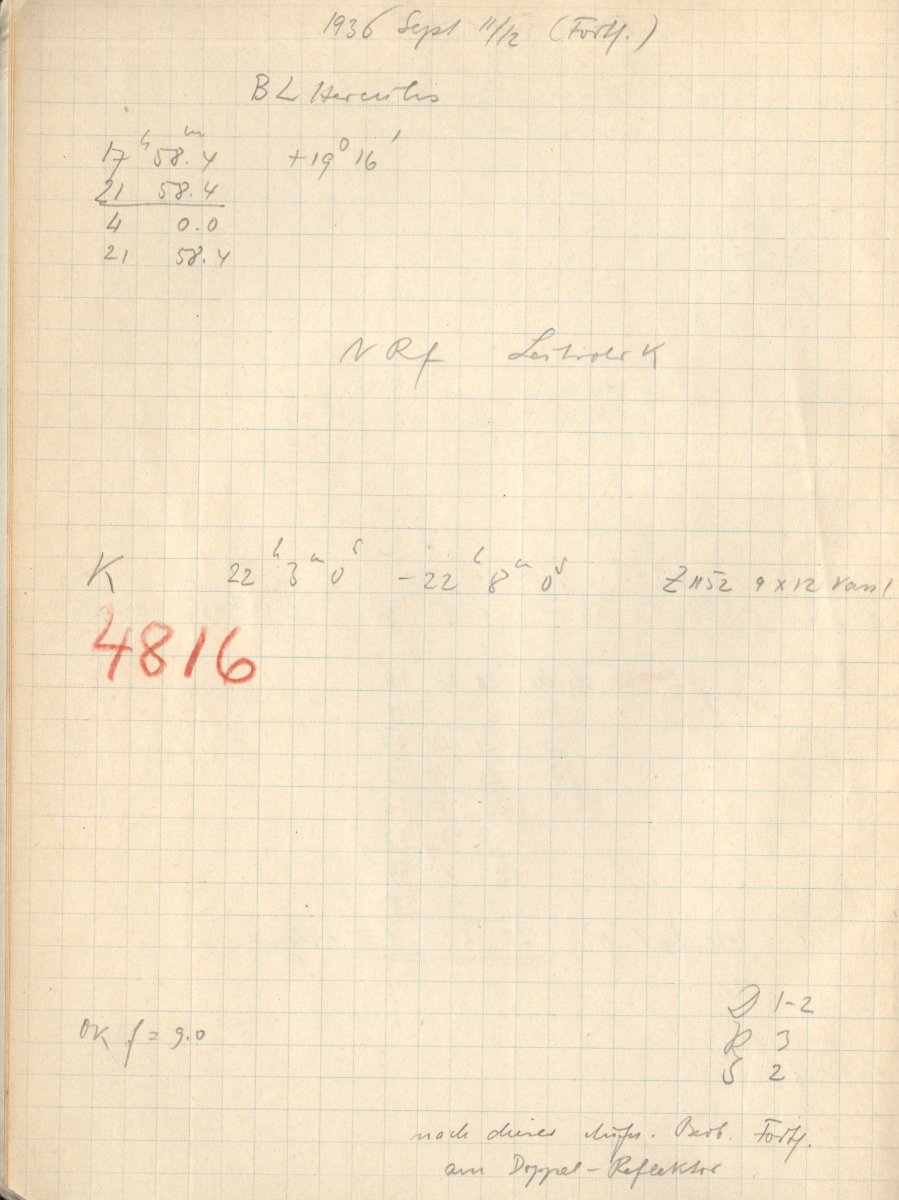 1936 Sept 11/12 (Fortf.)
BL Herculis
17ʰ 58.4ᵐ +19° 16'
21 58.4
4 0.0
21 58.4
N Rf Leitrohr K
K 22ʰ 3ᵐ 0ˢ -22ʰ 8ᵐ 0ˢ Z 1152 9 x 12
4816
D 1-2
OK f = 9.0 R 3
S 2
nach dieser Aufn. Beob. Fortf.
am Doppel-Reflektor